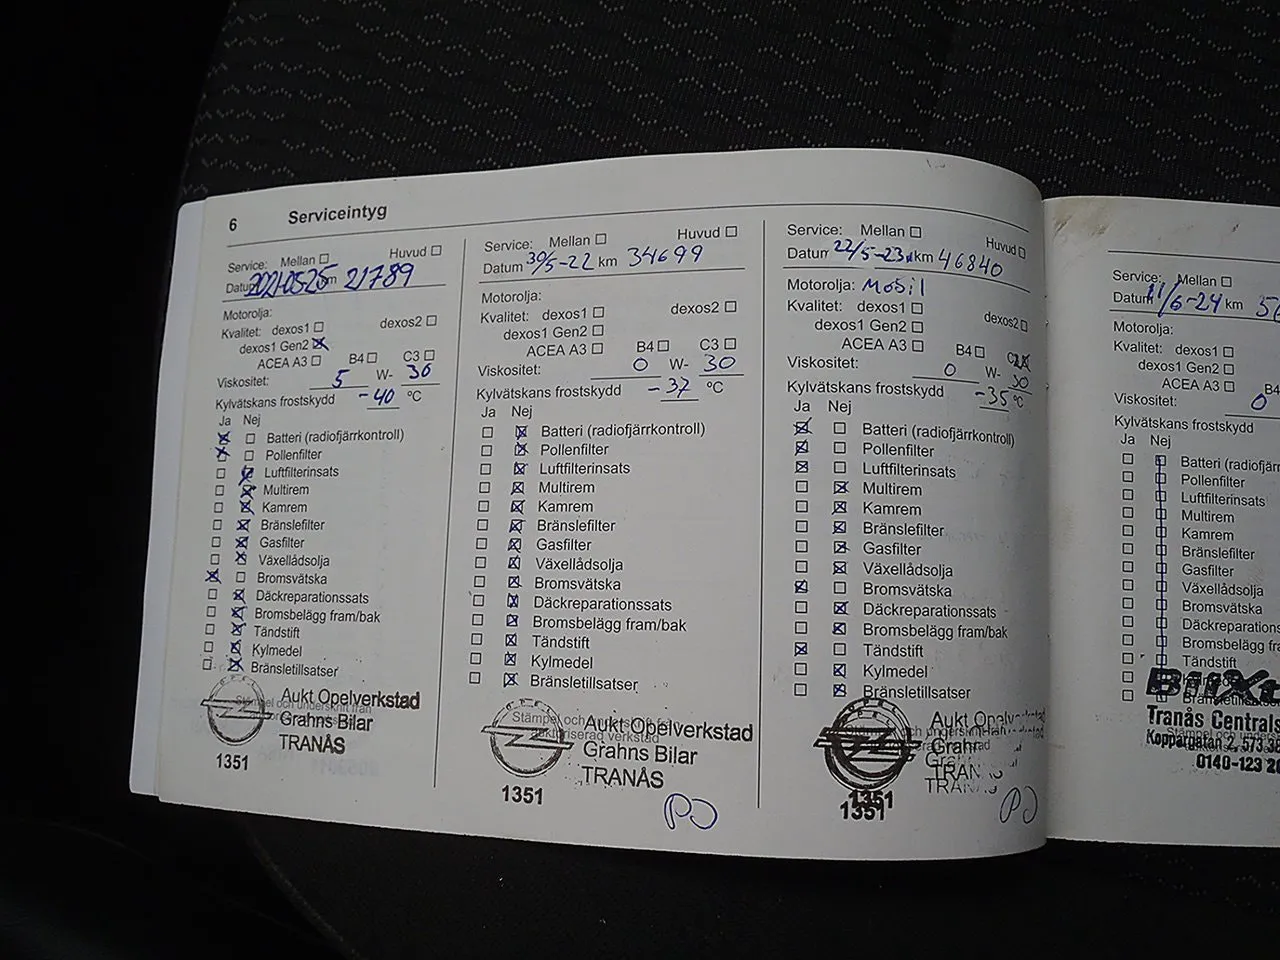 6 Serviceintyg
Service: Mellan Huvud
Datum 2021-05-25 km 21789
Motorolja:
Kvalitet: dexos1 dexos2
dexos1 Gen2
ACEA A3 B4 C3
Viskositet: 5 W- 30
Kylvätskans frostskydd -40 °C
Ja Nej
Batteri (radiofjärrkontroll)
Pollenfilter
Luftfilterinsats
Multirem
Kamrem
Bränslefilter
Gasfilter
Växellådsolja
Bromsvätska
Däckreparationssats
Bromsbelägg fram/bak
Tändstift
Kylmedel
Bränsletillsatser
Stämpel och underskrift från
OPEL
Aukt Opelverkstad
Grahns Bilar
TRANÅS
1351
Service: Mellan Huvud
Datum 30/5-22 km 34699
Motorolja:
Kvalitet: dexos1 dexos2
dexos1 Gen2
ACEA A3 B4 C3
Viskositet: 0 W- 30
Kylvätskans frostskydd -37 °C
Ja Nej
Batteri (radiofjärrkontroll)
Pollenfilter
Luftfilterinsats
Multirem
Kamrem
Bränslefilter
Gasfilter
Växellådsolja
Bromsvätska
Däckreparationssats
Bromsbelägg fram/bak
Tändstift
Kylmedel
Bränsletillsatser
Stämpel och
verkstad
OPEL
Aukt Opelverkstad
Grahns Bilar
TRANÅS
1351
Service: Mellan Huvud
Datum 22/5-23 km 46840
Motorolja: Mobil
Kvalitet: dexos1 dexos2
dexos1 Gen2
ACEA A3 B4 C3
Viskositet: 0 W- 30
Kylvätskans frostskydd -35 °C
Ja Nej
Batteri (radiofjärrkontroll)
Pollenfilter
Luftfilterinsats
Multirem
Kamrem
Bränslefilter
Gasfilter
Växellådsolja
Bromsvätska
Däckreparationssats
Bromsbelägg fram/bak
Tändstift
Kylmedel
Bränsletillsatser
OPEL
Aukt
Grahn
1351
1351
Service: Mellan
Datum 11/6-24 km
Motorolja:
Kvalitet: dexos1
dexos1 Gen2
ACEA A3 B
Viskositet: 0
Kylvätskans frostskydd
Ja Nej
Batteri (radiofjärr
Pollenfilter
Luftfilterinsats
Multirem
Kamrem
Bränslefilter
Gasfilter
Växellådsolja
Bromsvätska
Däckreparations
Bromsbelägg fra
Tändstift
Tranås Centrals
Koppargatan 2, 573 38
0140-123 20